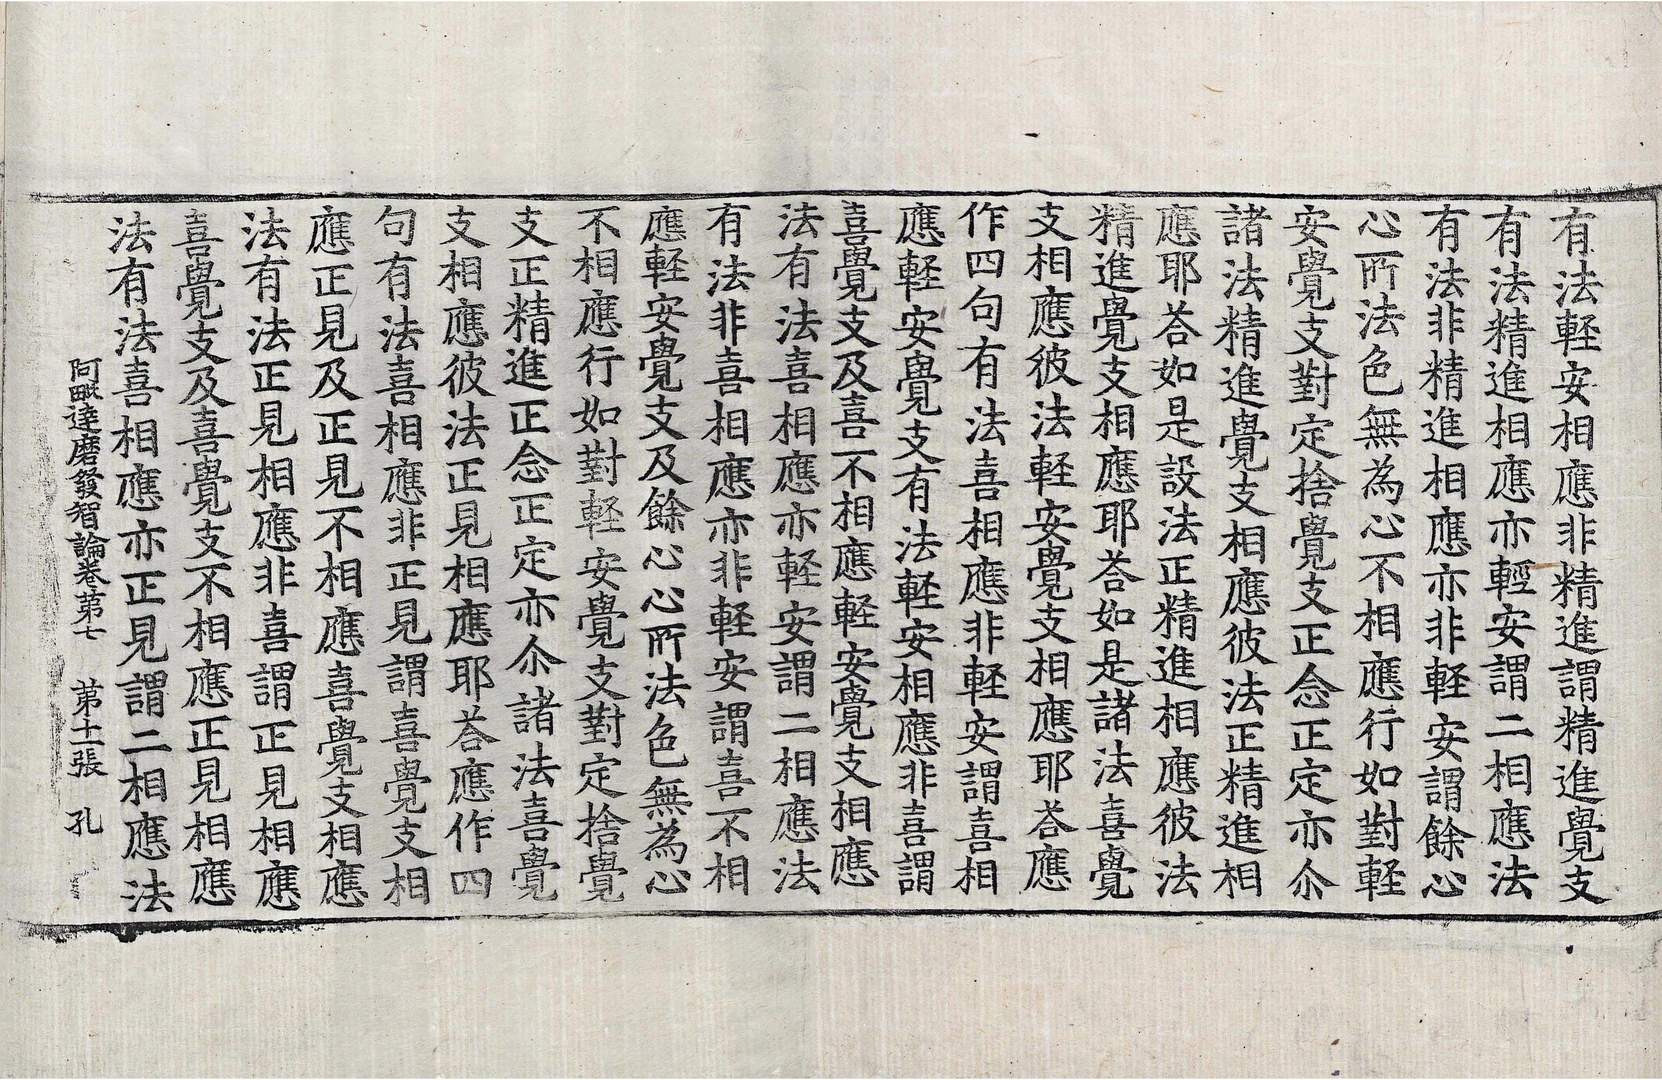 有法軽安相應非精進謂精進覺支
有法精進相應亦輕安謂二相應法
有法非精進相應亦非軽安謂餘心
心所法色無為心不相應行如對軽
安覺支對定捨覺支正念正定亦尒
諸法精進覺支相應彼法正精進相
應耶荅如是設法正精進相應彼法
精進覺支相應耶荅如是諸法喜覺
支相應彼法軽安覺支相應耶荅應
作四句有法喜相應非軽安謂喜相
應軽安覺支有法軽安相應非喜謂
喜覺支及喜不相應軽安覺支相應
法有法喜相應亦軽安謂二相應法
有法非喜相應亦非軽安謂喜不相
應軽安覺支及餘心心所法色無為心
不相應行如對軽安覺支對定捨覺
支正精進正念正定亦尒諸法喜覺
支相應彼法正見相應耶荅應作四
句有法喜相應非正見謂喜覺支相
應正見及正見不相應喜覺支相應
法有法正見相應非喜謂正見相應
喜覺支及喜覺支不相應正見相應
法有法喜相應亦正見謂二相應法
阿毗達磨發智論卷第七 第十一張 孔